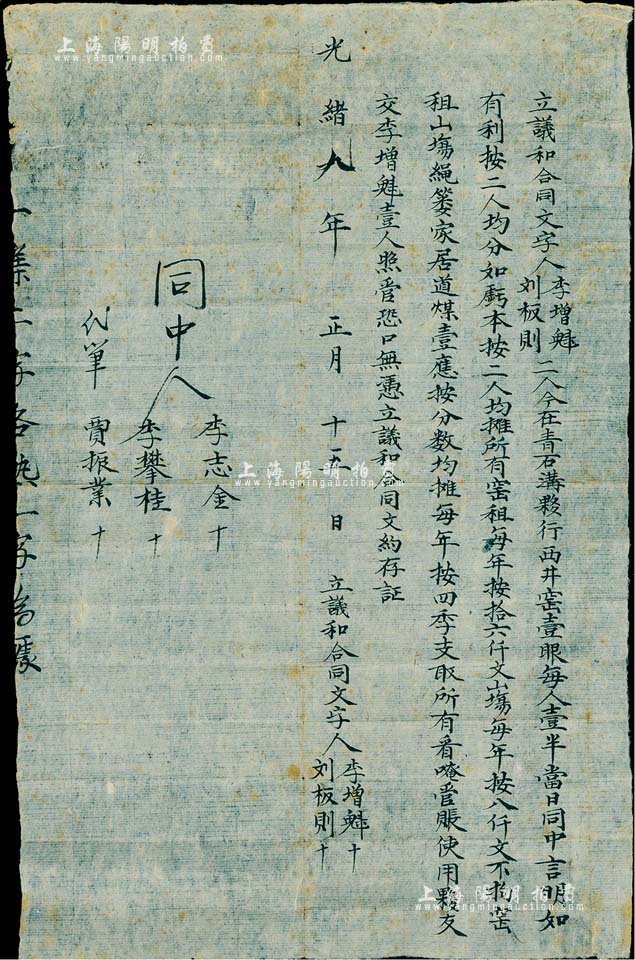 立議和合同文字人李增魁刘板則二人今在青石溝夥行西井窑壹眼每人壹半當日同中言明如
有利按二人均分如虧本按二人均攤所有窑租每年按拾六仟文山塲每年按八仟文不拘窑
租山塲繩篓家居道煤壹應按分数均攤每年按四季支取所有看唵管賬使用夥友
交李增魁壹人照管恐口無憑立議和合同文約存証
光緒九年正月十五日立議和合同文字人李增魁十刘板則十
同中人李志金十李攀桂十
代筆賈振業十
各执一字為據
上海陽明拍賣
www.yangmingauction.com
上海陽明拍賣
www.yangmingauction.com
上海陽明拍賣
www.yangmingauction.com